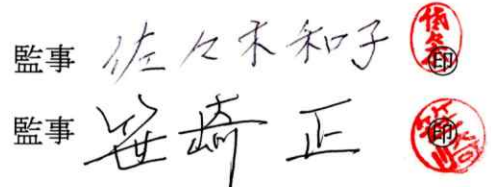 監事 佐々木和子 ㊞
監事 笹崎 正 ㊞